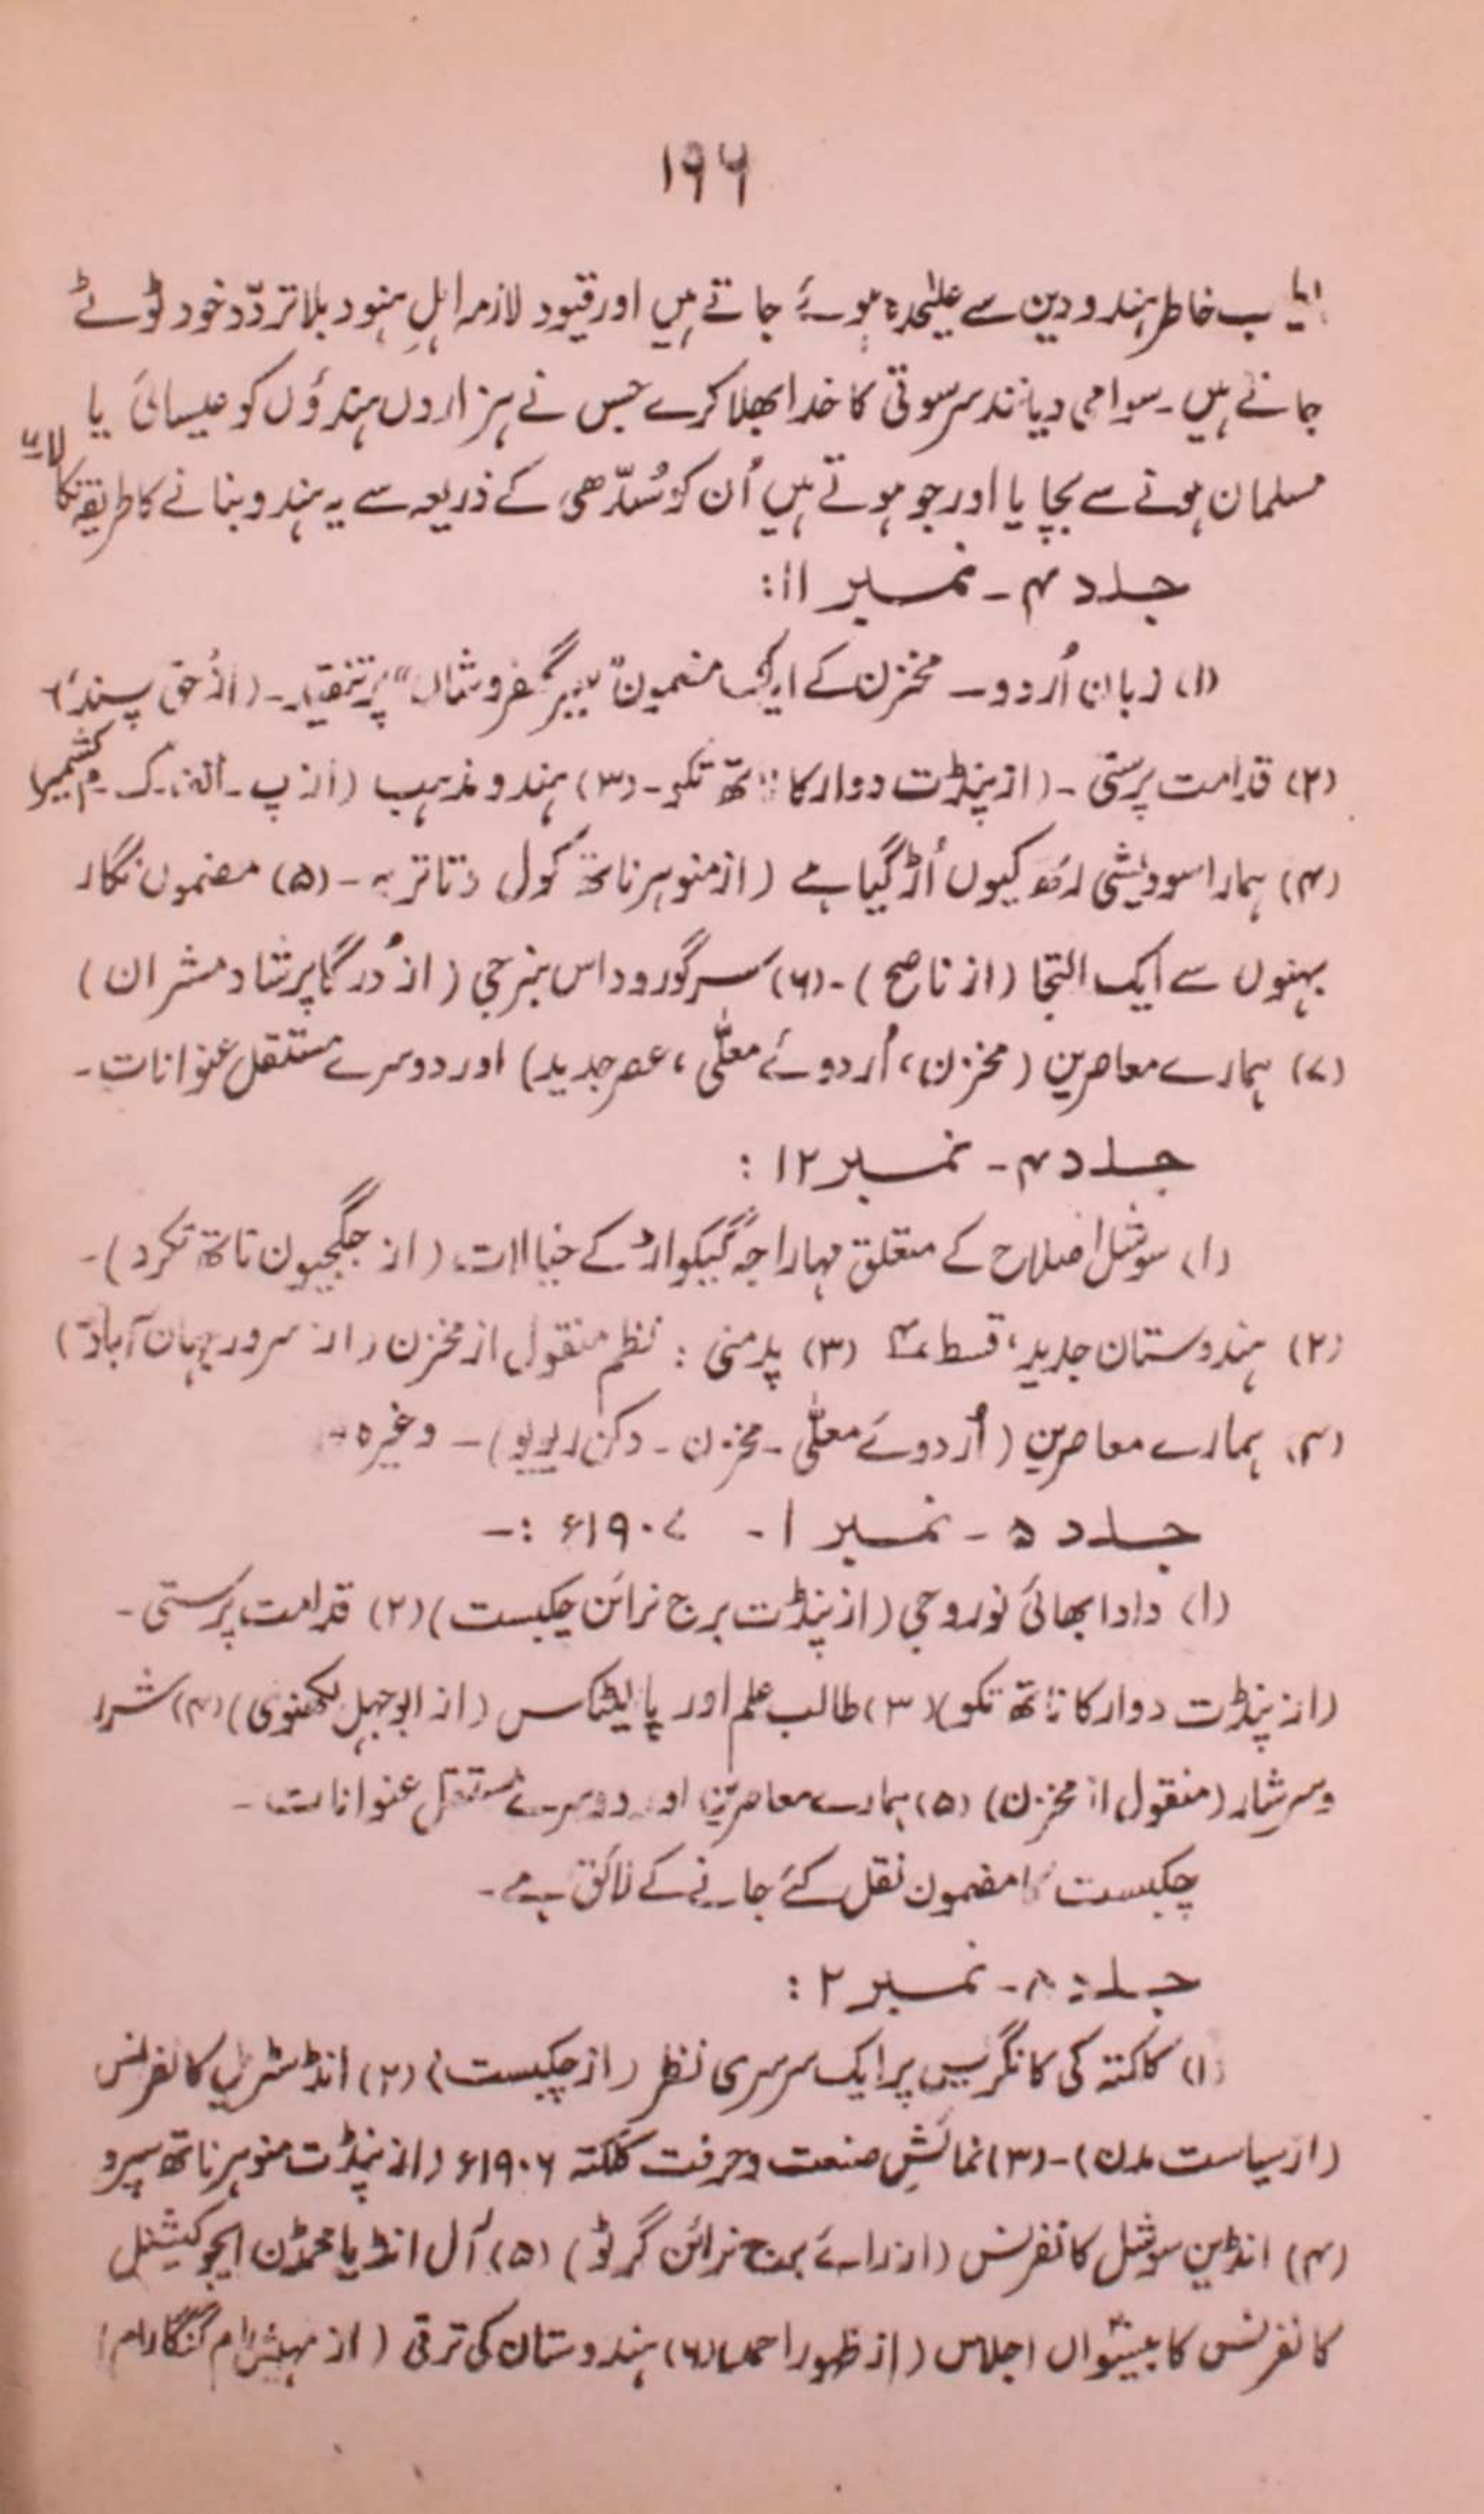 ۱۹۶
خاطر ہندو دین سے علیٰحدہ ہوئے جاتے ہیں اور قیود لازمہ اہلِ ہنود بلا تردّد خود ٹوٹے
جاتے ہیں ۔ سوامی دیانند سرسوتی کا خدا بھلا کرے جس نے ہزاروں ہندؤں کو عیسائی یا
مسلمان ہونے سے بچایا اور جو ہوتے ہیں اُن کو شُدّھی کے ذریعہ سے یہ ہندو بنانے کا طریقہ نکالا
جلد ۴ ۔ نمبر ۱۱:
(۱) زبان اُردو ۔ مخزن کے ایک مضمون ”سیر گلفروشاں“ پر تنقید ۔ (از حق پسند)
(۲) قدامت پرستی ۔ (از پنڈت دوارکا ناتھ تکو ۔ (۳) ہندو مذہب (از پ ۔ ک ۔ م کشمیر)
(۴) ہمارا سودیشی رتھ کیوں اُڑ گیا ہے (از منوہر ناتھ کول دتاتریہ ۔ (۵) مضمون نگار
بہنوں سے ایک التجا (از ناصح) ۔ (۶) سر گورو داس بنرجی (از دُرگا پرشاد مشران)
(۷) ہمارے معاصرین (مخزن، اُردوئے معلّٰی، عصر جدید) اور دوسرے مستقل عنوانات ۔
جلد ۴ ۔ نمبر ۱۲ :
(۱) سوشل اصلاح کے متعلق مہاراجہ گیکواڑ کے خیالات (از جگجیون ناتھ تکرد) ۔
(۲) ہندوستان جدید، قسط ۴ (۳) پدمنی : نظم منقول از مخزن (از سرور جہان آبادی)
(۴) ہمارے معاصرین (اُردوئے معلّٰی ۔ مخزن ۔ دکن ریویو) ۔ وغیرہ ۔
جلد ۵ ۔ نمبر ۱ ۔ ۱۹۰۷ء :۔
(۱) دادا بھائی نوروجی (از پنڈت برج نرائن چکبست) (۲) قدامت پرستی ۔
(از پنڈت دوارکا ناتھ تکو) (۳) طالب علم اور پالیٹکس (از ابوجہل لکھنوی) (۴) شرر
و سرشار (منقول از مخزن) (۵) ہمارے معاصرین اور دوسرے مستقل عنوانات ۔
چکبست کا مضمون نقل کئے جانے کے لائق ہے ۔
جلد ۔ نمبر ۲ :
(۱) کلکتہ کی کانگریس پر ایک سرسری نظر (از چکبست) (۲) انڈسٹریل کانفرنس
(از سیاست مدن) ۔ (۳) نمائشِ صنعت و حرفت کلکتہ ۱۹۰۶ء (از پنڈت منوہر ناتھ سپرو
(۴) انڈین سوشل کانفرنس (از رائے برج نرائن گرٹو) (۵) آل انڈیا محمڈن ایجوکیشنل
کانفرنس کا بیسواں اجلاس (از ظہور احمد) (۶) ہندوستان کی ترقی (از مہیش رام گنگا رام)